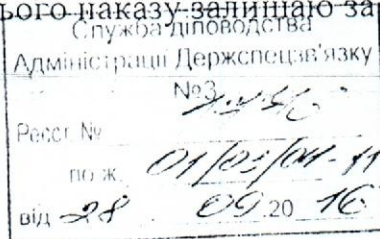 ього наказу залишаю за
Служба діловодства
Адміністрації Держспецзв'язку
№3
Реєст. №
по ж. 01/03/04-11
від 28 09 20 16